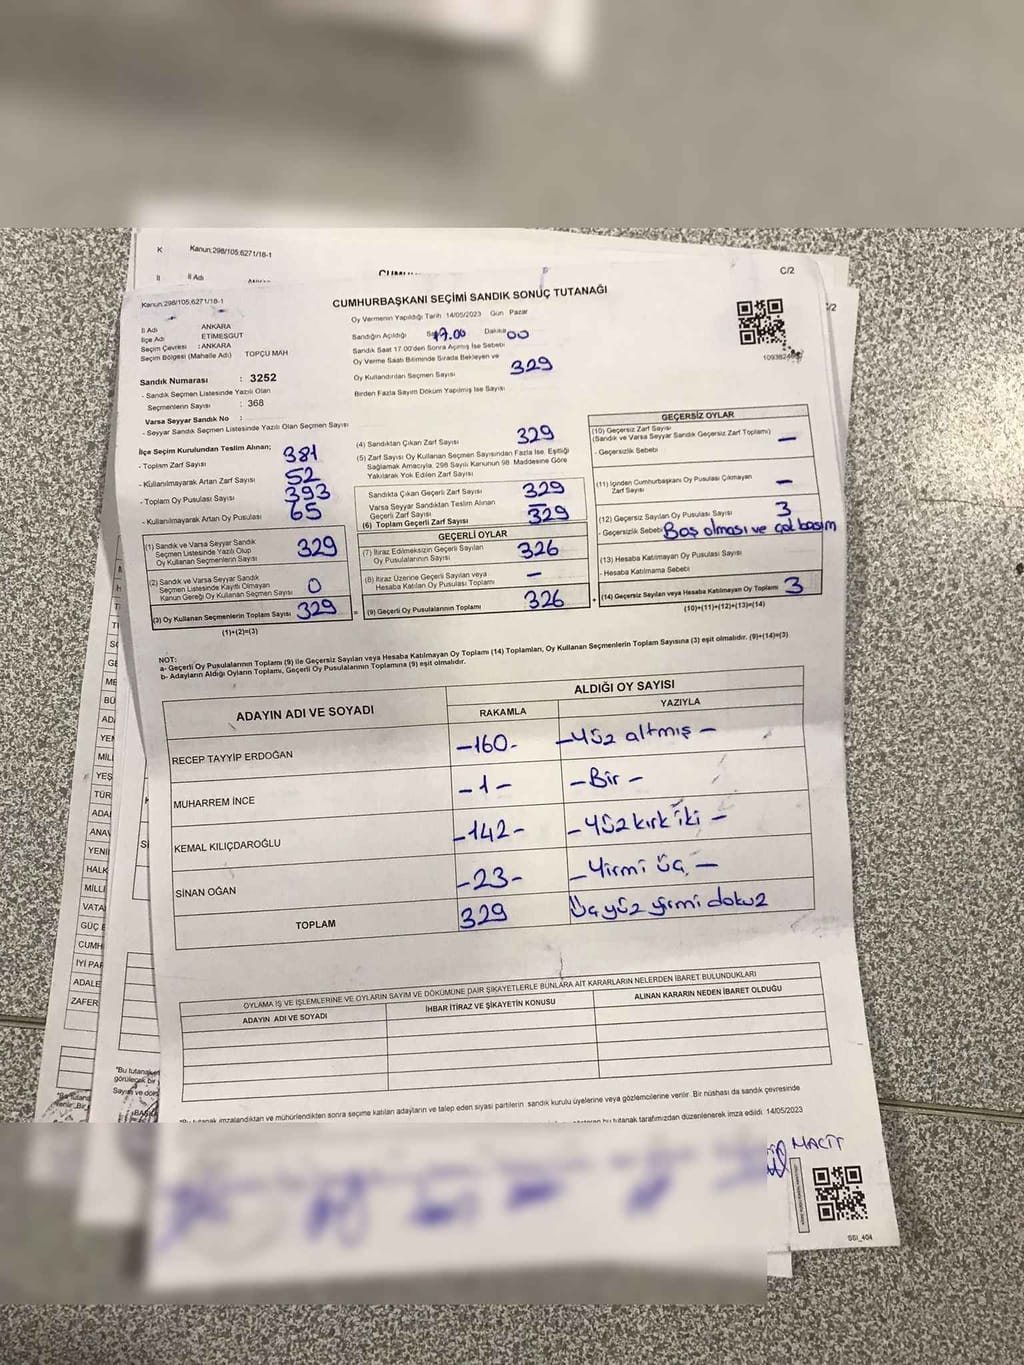 K Kanun:298/105,6271/18-1
İl İl Adı
C/2
Kanun:298/105,6271/18-1
CUMHURBAŞKANI SEÇİMİ SANDIK SONUÇ TUTANAĞI
Oy Vermenin Yapıldığı Tarih 14/05/2023 Gün Pazar
İl Adı ANKARA
İlçe Adı ETİMESGUT
Seçim Çevresi : ANKARA
Seçim Bölgesi (Mahalle Adı) TOPÇU MAH
Sandığın Açıldığı 17.00 Dakika 00
Sandık Saat 17.00'den Sonra Açılmış İse Sebebi
Oy Verme Saati Bitiminde Sırada Bekleyen ve
Oy Kullandırılan Seçmen Sayısı 329
Birden Fazla Sayım Döküm Yapılmış İse Sayısı
Sandık Numarası : 3252
- Sandık Seçmen Listesinde Yazılı Olan
Seçmenlerin Sayısı : 368
Varsa Seyyar Sandık No :
- Seyyar Sandık Seçmen Listesinde Yazılı Olan Seçmen Sayısı
İlçe Seçim Kurulundan Teslim Alınan;
- Toplam Zarf Sayısı 381
- Kullanılmayarak Artan Zarf Sayısı 52
- Toplam Oy Pusulası Sayısı 393
- Kullanılmayarak Artan Oy Pusulası 65
(1) Sandık ve Varsa Seyyar Sandık
Seçmen Listesinde Yazılı Olup
Oy Kullanan Seçmenlerin Sayısı 329
(2) Sandık ve Varsa Seyyar Sandık
Seçmen Listesinde Kayıtlı Olmayan
Kanun Gereği Oy Kullanan Seçmen Sayısı 0
(3) Oy Kullanan Seçmenlerin Toplam Sayısı 329
(1)+(2)=(3)
(4) Sandıktan Çıkan Zarf Sayısı 329
(5) Zarf Sayısı Oy Kullanan Seçmen Sayısından Fazla İse, Eşitliği
Sağlamak Amacıyla, 298 Sayılı Kanunun 98 Maddesine Göre
Yakılarak Yok Edilen Zarf Sayısı
Sandıkta Çıkan Geçerli Zarf Sayısı 329
Varsa Seyyar Sandıktan Teslim Alınan
Geçerli Zarf Sayısı –
(6) Toplam Geçerli Zarf Sayısı 329
GEÇERLİ OYLAR
(7) İtiraz Edilmeksizin Geçerli Sayılan
Oy Pusulasının Sayısı 326
(8) İtiraz Üzerine Geçerli Sayılan veya
Hesaba Katılan Oy Pusulası Toplamı –
= (9) Geçerli Oy Pusulalarının Toplamı 326 +
GEÇERSİZ OYLAR
(10) Geçersiz Zarf Sayısı
(Sandık ve Varsa Seyyar Sandık Geçersiz Zarf Toplamı) –
- Geçersizlik Sebebi
(11) İçinden Cumhurbaşkanı Oy Pusulası Çıkmayan
Zarf Sayısı –
(12) Geçersiz Sayılan Oy Pusulası Sayısı 3
- Geçersizlik Sebebi Boş olması ve çat basım
(13) Hesaba Katılmayan Oy Pusulası Sayısı
- Hesaba Katılmama Sebebi
(14) Geçersiz Sayılan veya Hesaba Katılmayan Oy Toplamı 3
(10)+(11)+(12)+(13)=(14)
NOT:
a- Geçerli Oy Pusulalarının Toplamı (9) ile Geçersiz Sayılan veya Hesaba Katılmayan Oy Toplamı (14) Toplamları, Oy Kullanan Seçmenlerin Toplam Sayısına (3) eşit olmalıdır. (9)+(14)=(3)
b- Adayların Aldığı Oyların Toplamı, Geçerli Oy Pusulalarının Toplamına (9) eşit olmalıdır.
ADAYIN ADI VE SOYADI ALDIĞI OY SAYISI
RAKAMLA YAZIYLA
RECEP TAYYİP ERDOĞAN -160- -Yüz altmış-
MUHARREM İNCE -1- -Bir-
KEMAL KILIÇDAROĞLU -142- -Yüz kırk iki-
SİNAN OĞAN -23- -Yirmi üç-
TOPLAM 329 Üç yüz yirmi dokuz
OYLAMA İŞ VE İŞLEMLERİNE VE OYLARIN SAYIM VE DÖKÜMÜNE DAİR ŞİKAYETLERLE BUNLARA AİT KARARLARIN NELERDEN İBARET BULUNDUKLARI
ADAYIN ADI VE SOYADI İHBAR İTİRAZ VE ŞİKAYETİN KONUSU ALINAN KARARIN NEDEN İBARET OLDUĞU
imzalandıktan ve mühürlendikten sonra seçime katılan adayların ve talep eden siyasi partilerin sandık kurulu üyelerine veya gözlemcilerine verilir. Bir nüshası da sandık çevresinde
bu tutanak tarafımızdan düzenlenerek imza edildi. 14/05/2023
MACİT
SSI_404